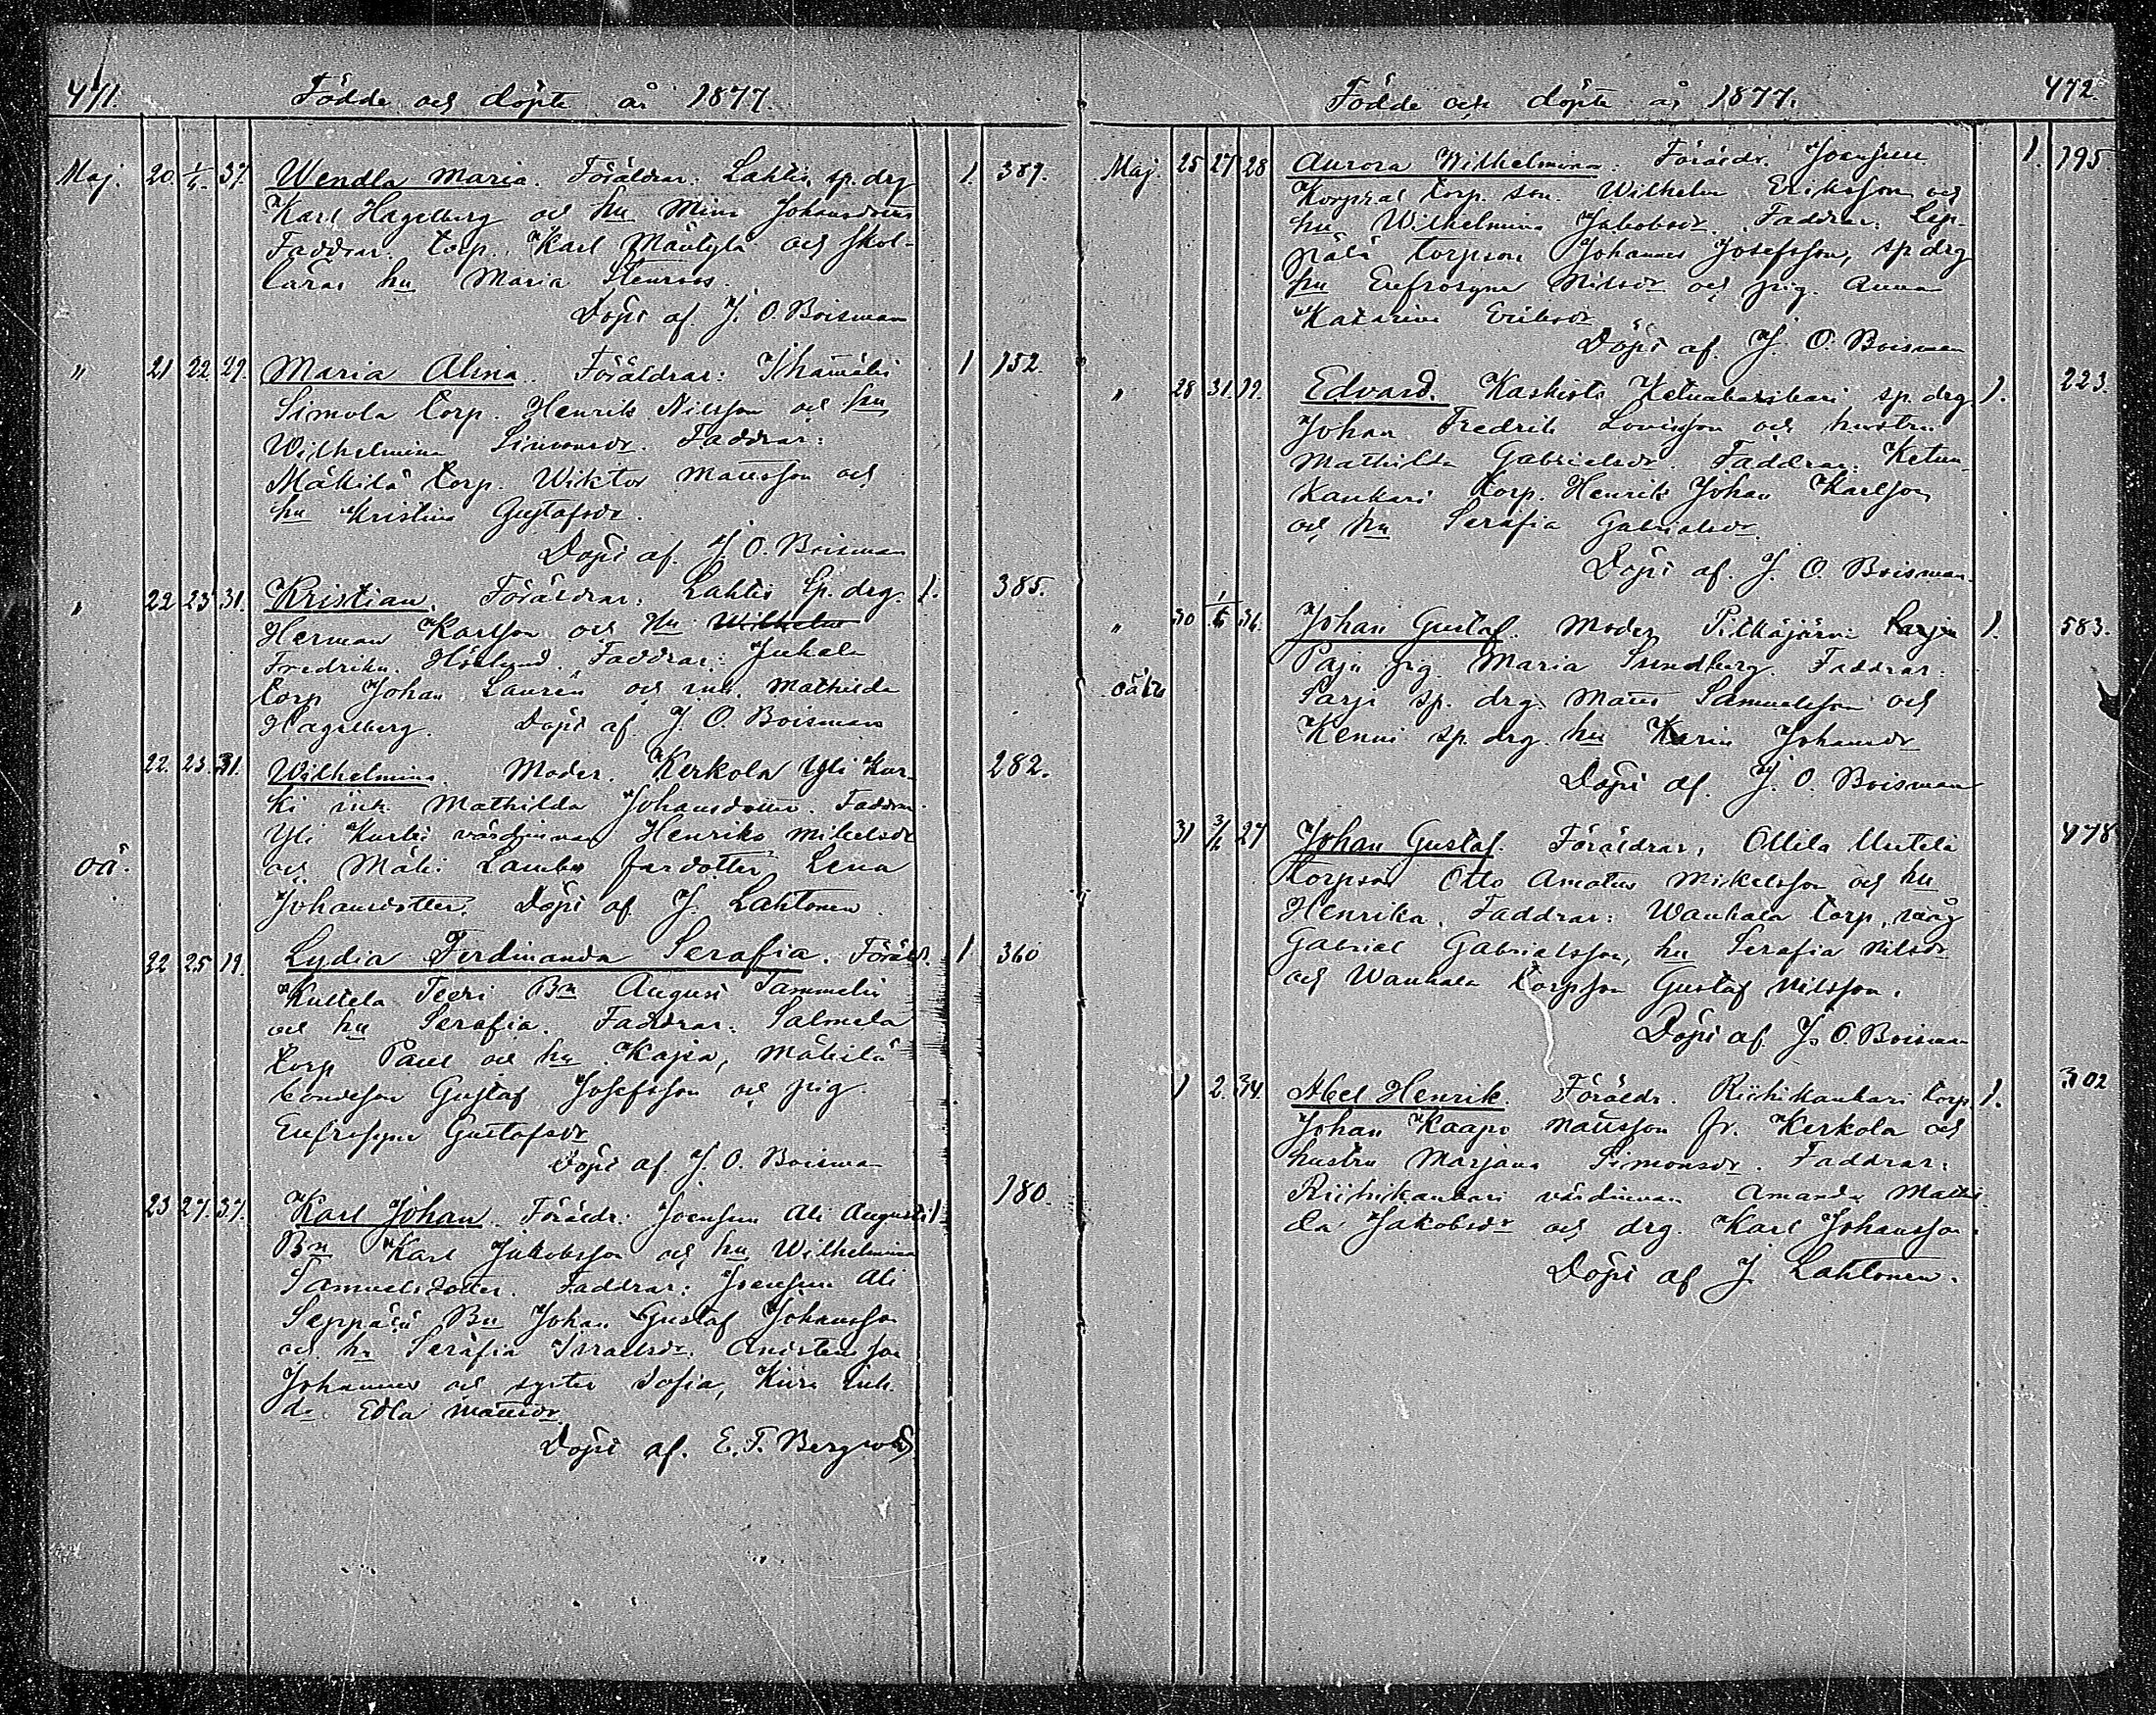 471. Födde och döpte år 1877.
Maj. 20. 1/6. 37. Wendla Maria. Föräldrar: Lahtis sp. drg 1. 389.
Karl Hagelberg och hu Mina Johansdotter
Faddrar: torp. Karl Mäntylä och skol-
lärar hu Maria Stenroos.
Döpt af. J. O. Boisman
" 21 22. 29. Maria Alina. Föräldrar: 1 152.
Simola torp. Henrik Nilsson och hu
Wilhelmina Simonsdr. Faddrar:
Mäkilä torp. Wiktor Mattsson och
hu Kristina Gustafsdr.
Döpt af. J. O. Boisman
" 22 23 31. Kristian. Föräldrar: Lahtis Sp. drg. 1. 385.
Herman Karlsson och hu Wilhelm
Fredrika Höglund. Faddrar: Juhala
torp Johan Laurén och inh. Mathilda
Hagelberg. Döpt af. J. O. Boisman
22. 23. 31. Wilhelmina. Moder. Kerkola Yli Kur- 282.
ki inh. Mathilda Johansdotter. Faddrar
Yli Kurki värdinnan Henrika Mikelsdr
oä. och Mäki Lambo fardotter Lena
Johansdotter. Döpt af J. Lahtonen.
22 25 19. Lydia Ferdinanda Serafia. Föräld. 1 360
Kultela Teeri Bn August Tammelin
och hu Serafia. Faddrar: Salmela
torp Paul och hu Kajsa, Mäkilä
bondeson Gustaf Josefsson och pig.
Eufrosyne Gustafsdr
Döpt af J. O. Boisman
23 27. 37. Karl Johan. Föräldr: Joensuu Ali Augusti 1 180.
Bn Karl Jakobsson och hu Wilhelmina
Samuelsdotter. Faddrar: Joensuu Ali
Seppälä Bn Johan Gustaf Johansson
och hu Serafia Israelsdr. Anisten son
Johannes och syster Sofia, inh.
dr Edla Mattsdr.
Döpt af. E. F. Bergroth
Födde och döpte år 1877. 472.
Maj 25 27 28 Aurora Wilhelmina: Föräldr. Joensuu 1. 195.
Korpral torp. son. Wilhelm Eriksson och
hu Wilhelmina Jakobsdr. Faddrar: Lep-
pälä torpson Johannes Josefsson, sp. drg
hu Eufrosyne Nilsdr och pig. Anna
Katarina Eriksdr
Döpt af. J. O. Boisman
" 28 31. 19. Edvard. Kaskisto Ketunkankari sp. drg. 1. 223.
Johan Fredrik Lovisson och hustru
Mathilda Gabrielsdr. Faddrar: Ketun-
kankari torp. Henrik Johan Karlsson
och hu Serafia Gabrielsdr.
Döpt af. J. O. Boisman.
" 30 1/6 36. Johan Gustaf. Moder Pitkäjärvi 1. 583.
oäkta Paju pig. Maria Sundberg. Faddrar:
Sarji sp. drg. Matts Samuelsson och
Kenni sp. drg. hu Karin Johansdr
Döpt af. J. O. Boisman
31 3/6 27 Johan Gustaf. Föräldrar: Ollila Uutela 478
torpson Otto Amatus Mikelsson och hu
Henrika. Faddrar: Wanhala torp. måg
Gabriel Gabrielsson, hu Serafia Nilsdr
och Wanhala torpson Gustaf Nilsson.
Döpt af J. O. Boisman
1 2. 34. Abel Henrik. Föräldr. Riihikankari torp. 1. 302
Johan Kaapo Mattsson fr. Kerkola och
hustru Marjana Simonsdr. Faddrar:
Riihikankari värdinnan Amanda Mathil-
da Jakobsdr och drg. Karl Johansson.
Döpt af J Lahtonen.